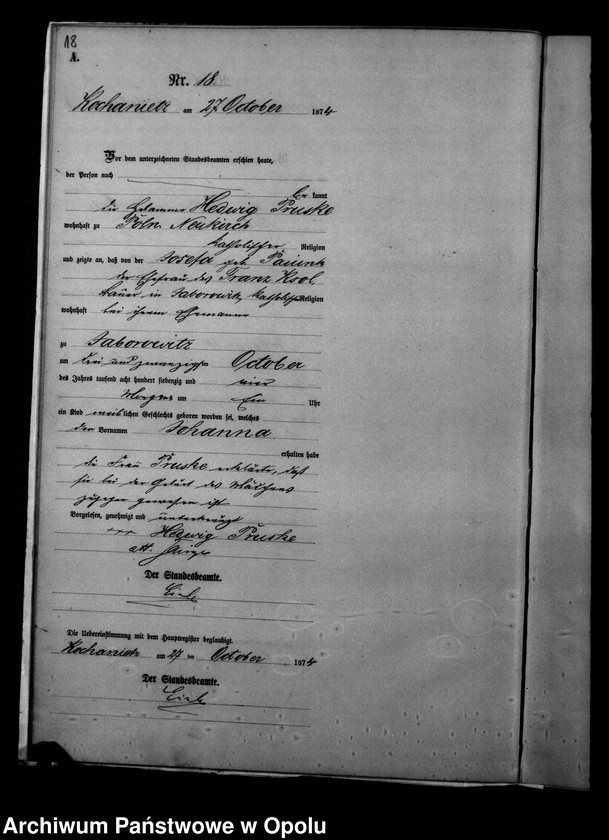 18
A.
Nr. 18.
Kochanietz am 27 October 1874
Vor dem unterzeichneten Standesbeamten erschien heute,
der Person nach
be kannt
die Hebamme Hedwig Pruske
wohnhaft zu Poln. Neukirch
katholischer Religion
und zeigte an, daß von der Josefa geb.
der Ehefrau des Franz Ksol
Bauer in Jaborowitz, katholischer Religion
wohnhaft bei ihrem Ehemanne
zu Jaborowitz
am drei und zwanzigsten October
des Jahres tausend acht hundert siebenzig und vier
Morgens um Ein Uhr
ein Kind weiblichen Geschlechts geboren worden sei, welches
den Vornamen Johanna
erhalten habe
die Frau Pruske erklärte, daß
sie bei der Geburt des Mädchens
zugegen gewesen ist
Vorgelesen, genehmigt und unterkreuzt
+++ Hedwig Pruske
Der Standesbeamte.
Die Uebereinstimmung mit dem Hauptregister beglaubigt.
Kochanietz am 27 ten October 1874
Der Standesbeamte.
Archiwum Państwowe w Opolu